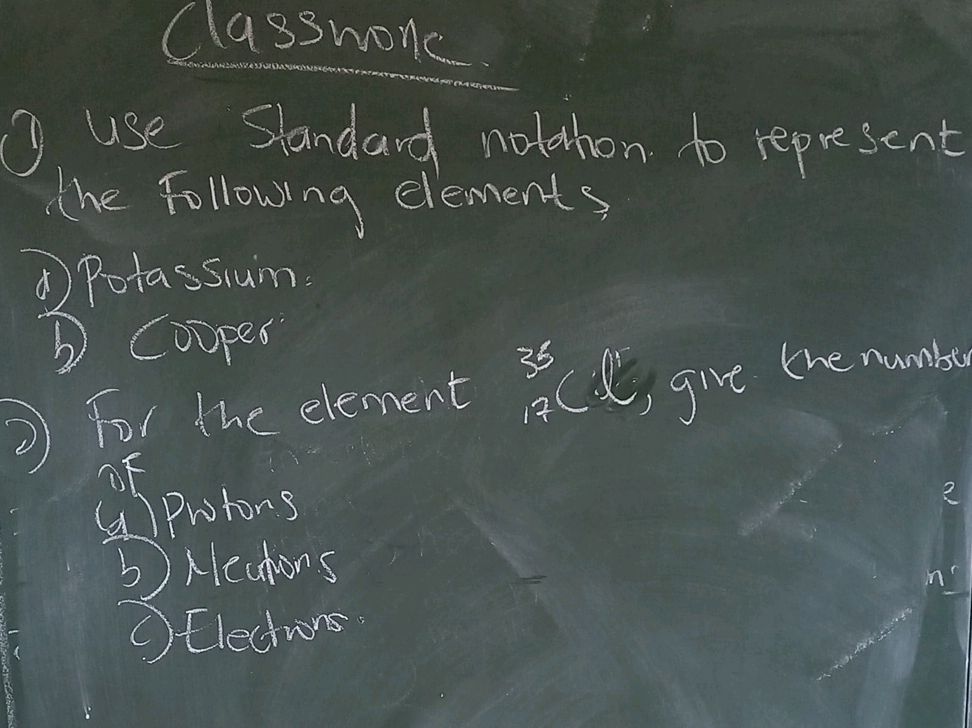 Classwork
1) Use Standard notation to represent
the Following elements
a) Potassium.
b) Cooper
2) For the element ³⁵₁₇Cl, give the number
of
a) Protons
b) Neutrons
c) Electrons.